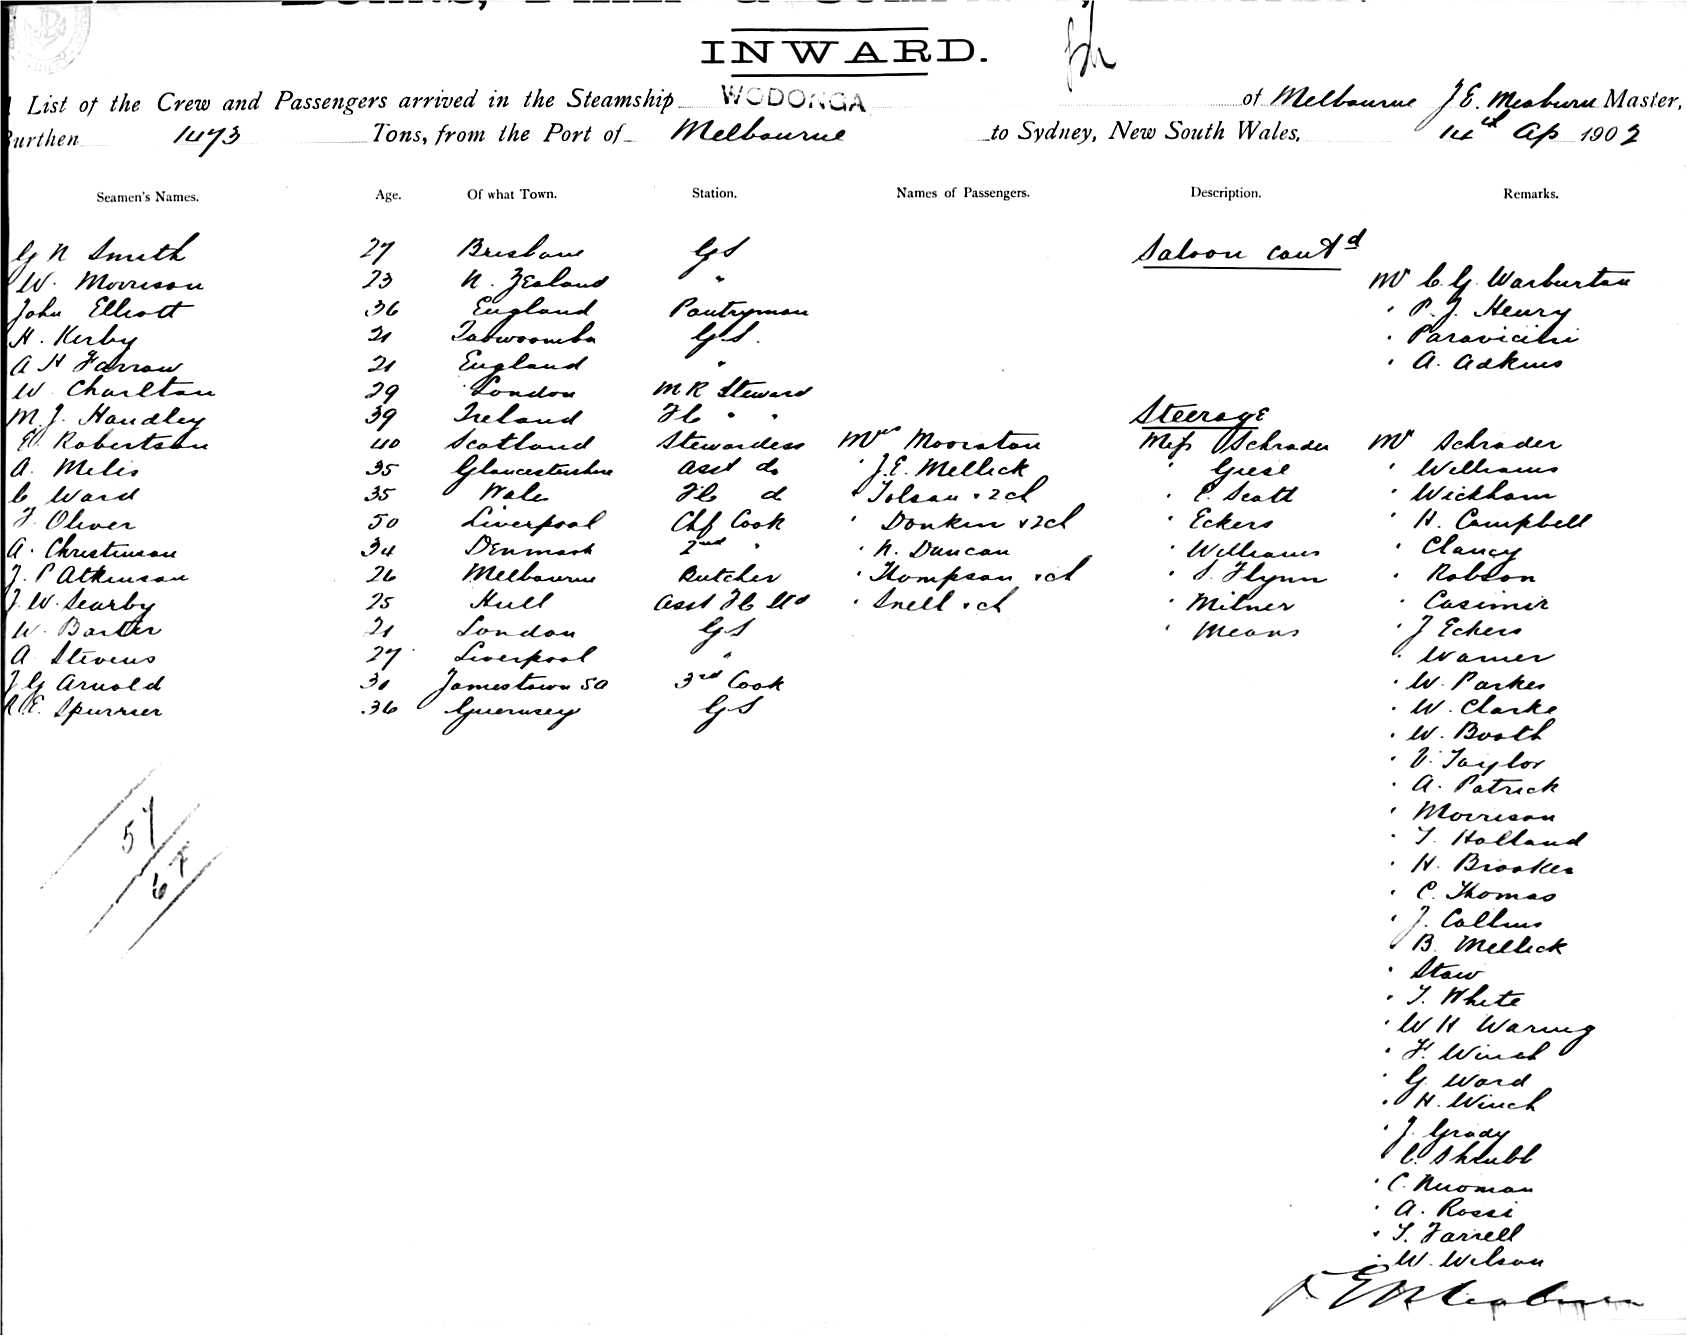 INWARD.
List of the Crew and Passengers arrived in the Steamship WODONGA of Melbourne J E. Meaburn Master,
Burthen 1473 Tons, from the Port of Melbourne to Sydney, New South Wales, 14th Ap 1902
Seamen's Names. Age. Of what Town. Station. Names of Passengers. Description. Remarks.
G N Smith 27 Brisbane G S Saloon contd
W. Morrison 23 N. Zealand " Mr C. G. Warburton
John Elliott 36 England Pantryman " P. J. Henry
H. Kerby 21 Toowoomba G S. " Paravicini
A H Farrow 21 England " " A. Adkins
W Charlton 29 London M R Steward
M. J. Handley 39 Ireland F C " " Steerage
E. Robertson 40 Scotland Stewardess Mrs Moorston Miss Schrader Mr Schrader
A. Melis 35 Gloucestershire Asst do " J. E. Mellick " Giese " Williams
C Ward 35 Wales F C d " Tolson & 2 ch " E. Scott " Wickham
F. Oliver 50 Liverpool Chf Cook " Donkin & 2 ch " Eckers " H. Campbell
A. Christinson 34 Denmark 2nd " " N. Duncan " Williams " Clancy
J. P Atkinson 26 Melbourne Butcher " Thompson & ch " S. Flynn " Robson
J. W. Searby 25 Hull Asst F C Std " Snell & ch " Milner " Casimir
W. Barter 21 London G S " Means " J Eckers
A. Stevens 27 Liverpool " " Warner
J G Arnold 30 Jamestown SA 3rd Cook " W. Parkes
R E. Spurrier 36 Guernsey G S " W. Clarke
" W. Booth
" V. Taylor
" A. Patrick
" Morrison
" T. Holland
" H. Brookes
" C. Thomas
" J. Collins
" B. Mellick
" Staw
" T. White
" W H Waring
" F. Winch
" G. Ward
" H. Winch
" J. Grady
" C. Shrubb
" C. Nuoman
" A. Rossi
" T. Farrell
" W. Wilson
57
67
J E Meaburn